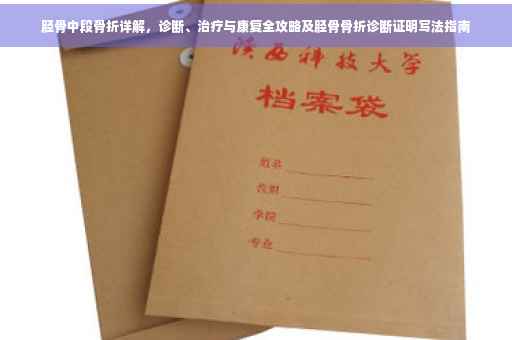 胫骨中段骨折详解，诊断、治疗与康复全攻略及胫骨骨折诊断证明写法指南
陕西科技大学
档案袋
姓名
学院
专业